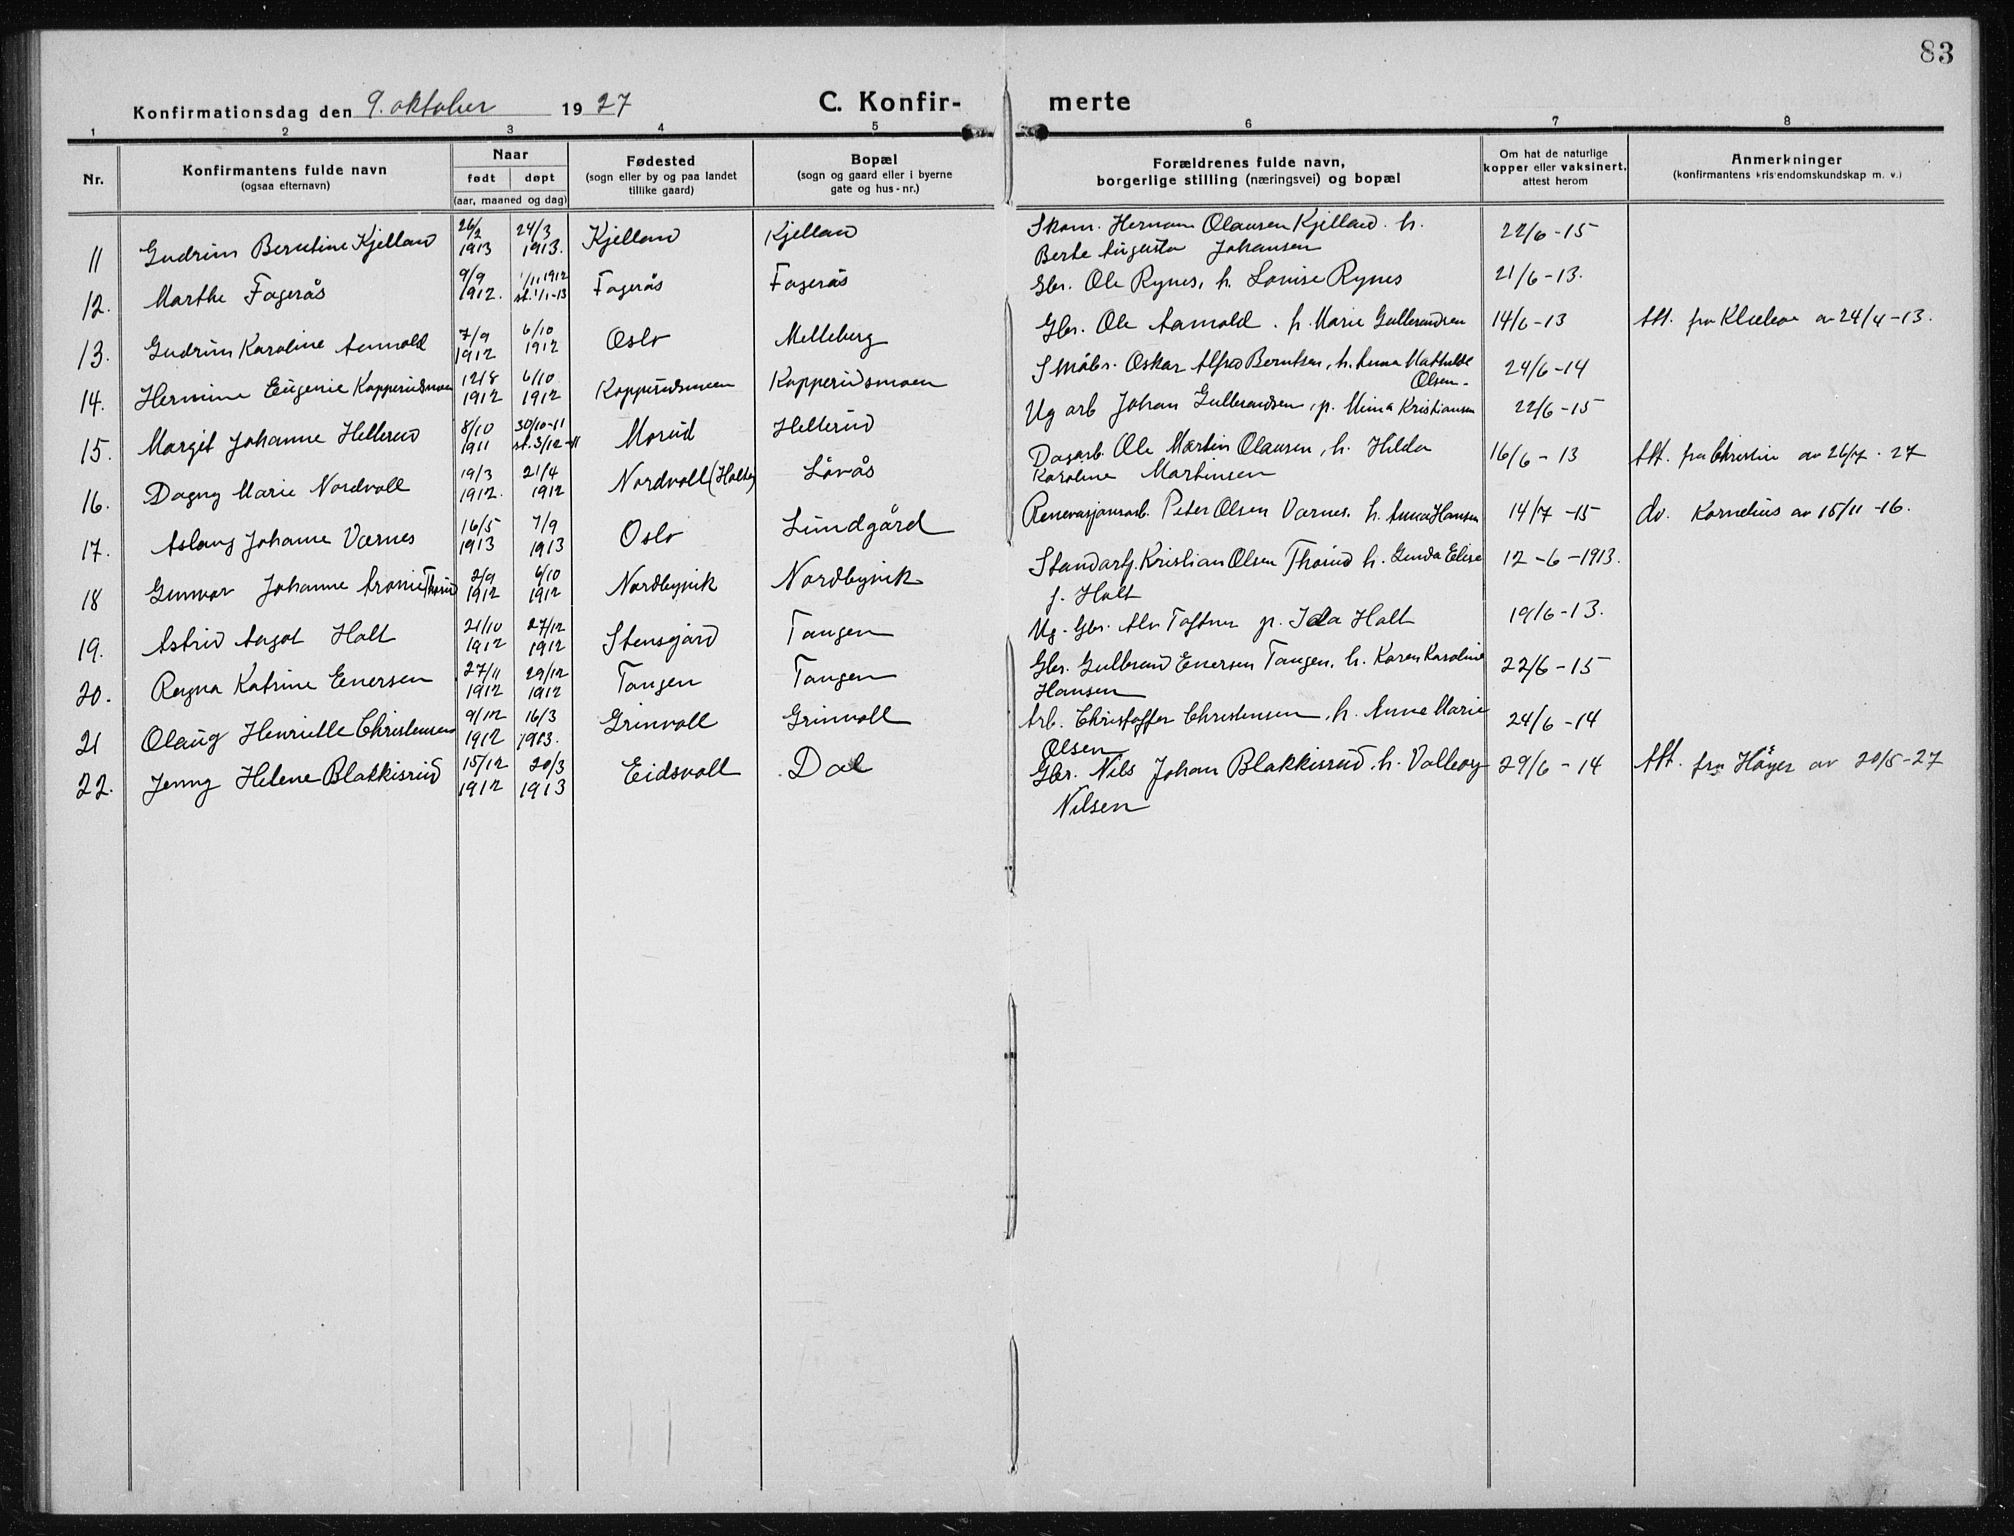 83
Konfirmationsdag den 9. oktober 1927
C. Konfir- merte
1 2 3 4 5 6 7 8
Nr.
Konfirmantens fulde navn
(ogsaa efternavn)
Naar
født døpt
(aar, maaned og dag)
Fødested
(sogn eller by og paa landet
tillike gaard)
Bopæl
(sogn og gaard eller i byerne
gate og hus-nr.)
Forældrenes fulde navn,
borgerlige stilling (næringsvei) og bopæl
Om hat de naturlige
kopper eller vaksinert,
attest herom
Anmerkninger
(konfirmantens kristendomskundskap m. v.)
11 Gudrun Berntine Kjelland 26/2 1913 24/3 1913. Kjelland Kjelland Skom. Herman Olausen Kjelland. h. 22/6-15
Berte Augusta Johansen
12. Marthe Fagerås 9/9 1912. 1/11 1912 st. 1/1-13 Fagerås Fagerås Gbr. Ole Rynes, h. Lovise Rynes 21/6-13.
13. Gudrun Karoline Aamold 7/9 1912 6/10 1912 Oslo Melleberg Gbr. Ole Aamold. h. Marie Gulbrandsen 14/6-13 Att. fra av 24/4-13.
14. Hermine Eugenie Kopperudsmoen 12/8 1912 6/10 1912 Kopperudsmoen Kopperudsmoen Småbr. Oskar Alfred Berntsen, h. Anna Mathilde 24/6-14
Olsen.
15. Margit Johanne Hellerud 8/10 1911 30/10-11 st. 3/12-11 Morud Hellerud Ug arb Johan Gulbrandsen, p. Mina Kristiansen 22/6-15
16. Dagny Marie Nordvoll 19/3 1912. 21/4 1912 Nordvoll (Holter) Låvås Dagarb. Ole Martin Olausen, h. Hilda 16/6-13 Att. fra Christin av 26/7-27
Karoline Martinsen
17. Aslaug Johanne Værnes 16/5 1913 7/9 1913 Oslo Lundgård Renovasjonsarb. Peter Olsen Værnes. h. Anna Hansen 14/7-15 do. Kornelius av 15/11-16.
18 Gunvor Johanne Aronie Thorud 2/9 1912 6/10 1912 Nordbyvik Nordbyvik Kristian Olsen Thorud h. Gunda Elise 12-6-1913.
f. Holt
19. Astrid Aagot Holt 21/10 1912 27/12 1912 Stensgård Tangen Ug. Gbr. Alv Toftner p. Ida Holt 19/6-13.
20. Ragna Katrine Enersen 27/11 1912 29/12 1912 Tangen Tangen Gbr. Gulbrand Enersen Tangen, h. Karen Karoline 22/6-15
Hansen
21 Olaug Henriette Christensen 9/12 1912 16/3 1913. Grinvoll Grinvoll Arb. Christoffer Christensen, h. Anna Marie 24/6-14
Olsen
22. Jenny Helene Blakkisrud 15/12 1912 20/3 1913 Eidsvoll Dal Gbr. Nils Johan Blakkisrud, h. Valborg 29/6-14 Att. fra Høyer av 20/5-27
Nilsen